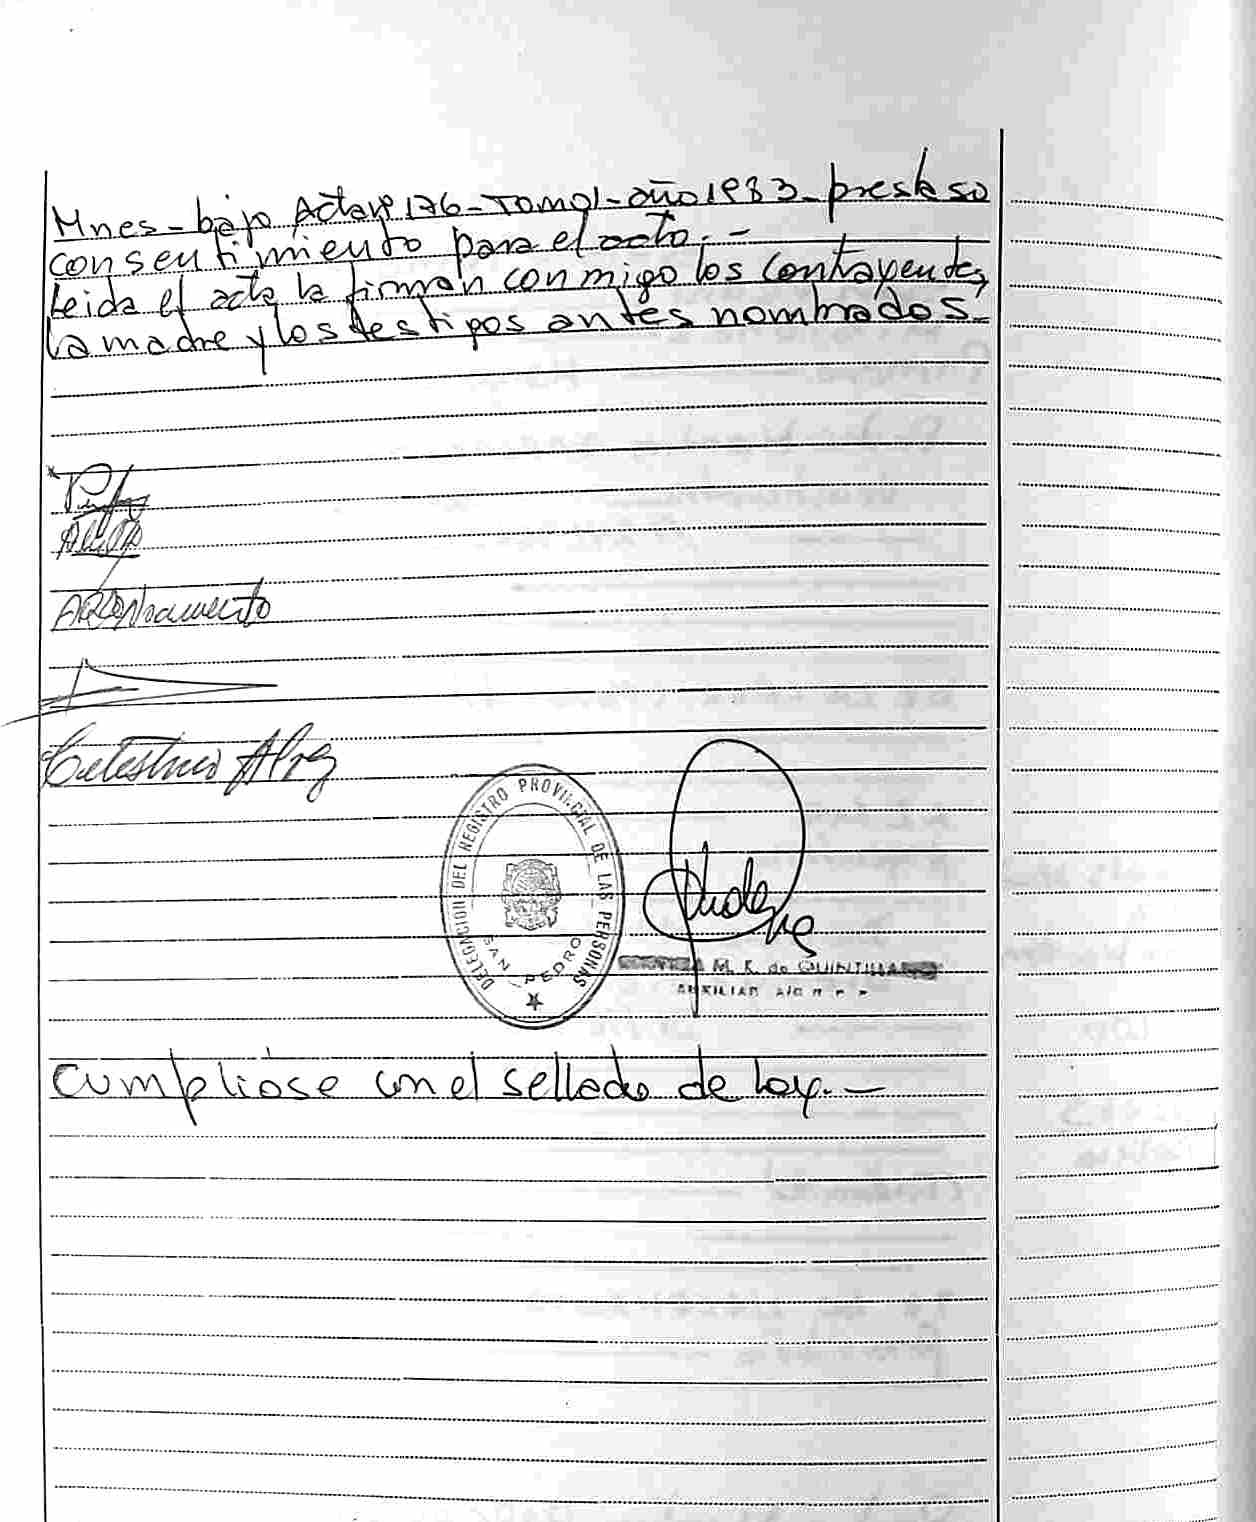 Mnes - bajo Acta nº 176 - Tomo 1 - año 1983 - presta so
consentimiento para el acto. -
Leida el acta la firman conmigo los contrayentes,
la madre y los testigos antes nombrados.
Celestino Alvez
DELEGACION DEL REGISTRO PROVINCIAL DE LAS PERSONAS
SAN PEDRO
M. K. de QUINTILLANO
AUXILIAR
Cumplióse con el sellado de ley. -